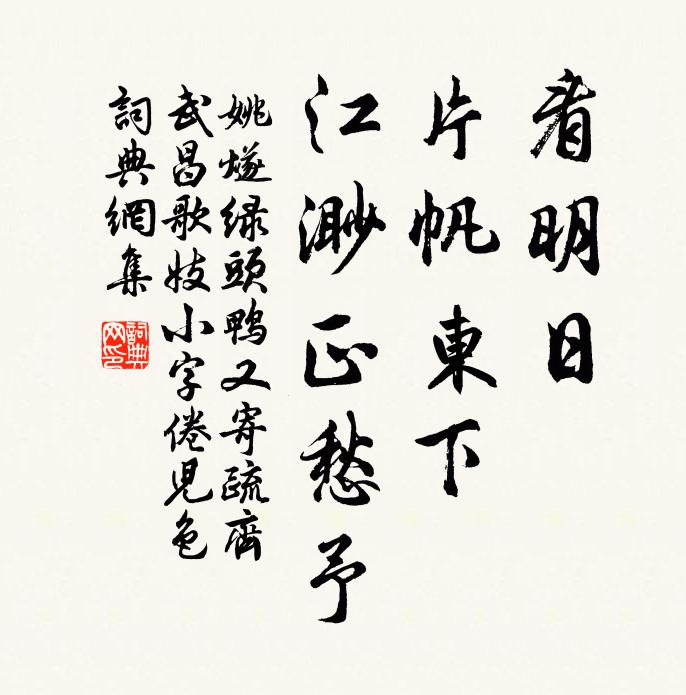 看明日
片帆東下
江渺正愁予
姚燧緑頭鴨又寄疏齊
武昌歌妓小字倦兒色
詞典網集
詞典网印